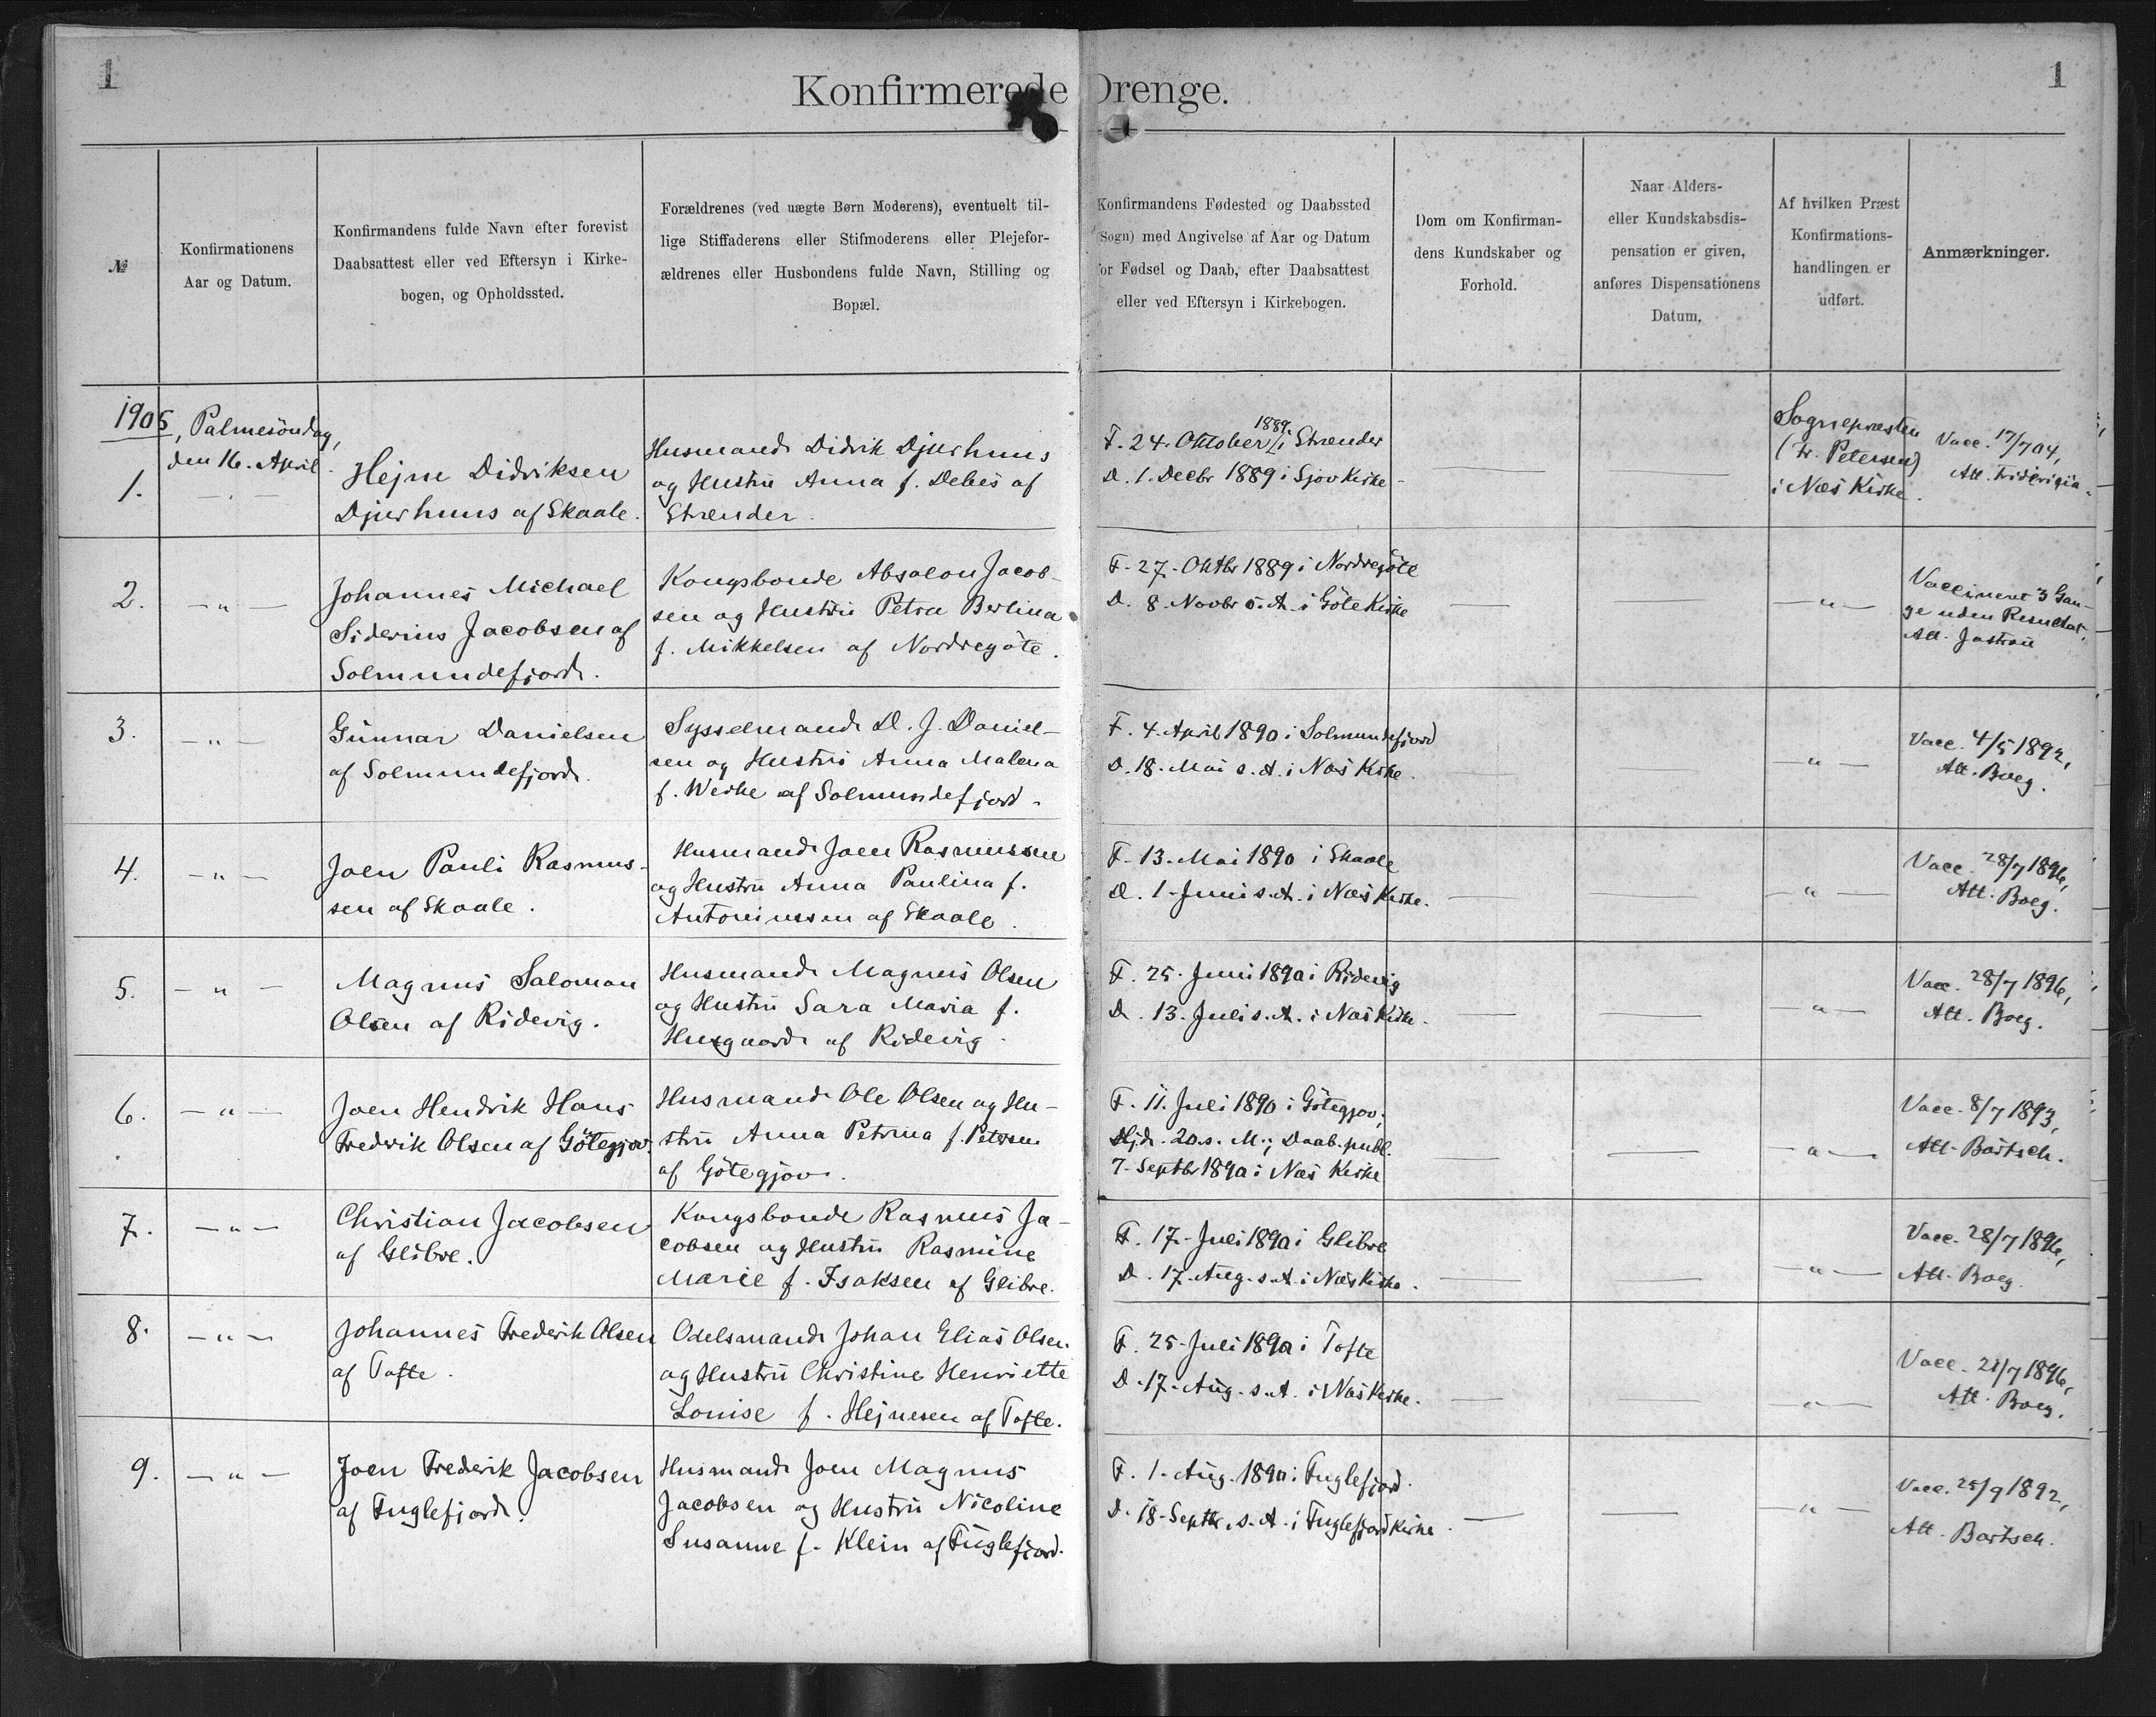 1
Konfirmerede Drenge.
1
№
Konfirmationens
Aar og Datum.
Konfirmandens fulde Navn efter forevist
Daabsattest eller ved Eftersyn i Kirke-
bogen, og Opholdssted.
Forældrenes (ved uægte Børn Moderens), eventuelt til-
lige Stiffaderens eller Stifmoderens eller Plejefor-
ældrenes eller Husbondens fulde Navn, Stilling og
Bopæl.
Konfirmandens Fødested og Daabssted
(Sogn) med Angivelse af Aar og Datum
for Fødsel og Daab, efter Daabsattest
eller ved Eftersyn i Kirkebogen.
Dom om Konfirman-
dens Kundskaber og
Forhold.
Naar Alders-
eller Kundskabsdis-
pensation er given,
anføres Dispensationens
Datum.
Af hvilken Præst
Konfirmations-
handlingen er
udført.
Anmærkninger.
1905, Palmesöndag,
den 16. April.
1.
Hejne Didriksen
Djurhuus af Skaale.
Husmand Didrik Djurhuus
og Hustru Anna f. Debes af
Strænder.
F. 24. Oktober 1889 i Strænder
D. 1. Decbr 1889 i Sjov Kirke
Sognepræsten
(Fr. Petersen)
i Næs Kirke.
Vacc. 17/7 04,
Att.
2. — " —
Johannes Michael
Siderius Jacobsen af
Solmundefjord.
Kongsbonde Absalon Jacob-
sen og Hustru Petra Berlina
f. Mikkelsen af Nordregöte.
F. 27. Oktbr 1889 i Nordregöte
D. 8. Novbr s. A. i Göte Kirke
— " —
Vaccineret 3 Gan-
ge uden Resultat,
Att. Jastrau
3. — " —
Gunnar Danielsen
af Solmundefjord.
Sysselmand D. J. Daniel-
sen og Hustru Anna Malena
f. Weihe af Solmundefjord.
F. 4. April 1890 i Solmundefjord
D. 18. Mai s. A. i Næs Kirke.
— " —
Vacc. 4/5 1892,
Att. Boeg.
4. — " —
Joen Pauli Rasmus-
sen af Skaale.
Husmand Joen Rasmussen
og Hustru Anna Paulina f.
Antoniussen af Skaale.
F. 13. Mai 1890 i Skaale
D. 1. Juni s. A. i Næs Kirke.
— " —
Vacc. 28/7 1896,
Att. Boeg.
5. — " —
Magnus Salomon
Olsen af Ridevig.
Husmand Magnus Olsen
og Hustru Sara Maria f.
Husgaard af Ridevig.
F. 25. Juni 1890 i Ridevig
D. 13. Juli s. A. i Næs Kirke.
— " —
Vacc. 28/7 1896,
Att. Boeg.
6. — " —
Joen Hendrik Hans
Fredrik Olsen af Götegjov.
Husmand Ole Olsen og Hu-
stru Anna Petrina f. Petersen
af Götegjov.
F. 11. Juli 1890 i Götegjov;
Hjd. 20. s. M.; Daab. publ.
7. Septbr 1890 i Næs Kirke
— " —
Vacc. 8/7 1893,
Att. Bartsch.
7. — " —
Christian Jacobsen
af Glibre.
Kongsbonde Rasmus Ja-
cobsen og Hustru Rasmine
Marie f. Isaksen af Glibre.
F. 17. Juli 1890 i Glibre
D. 17. Aug. s. A. i Næs Kirke.
— " —
Vacc. 28/7 1896,
Att. Boeg.
8. — " —
Johannes Frederik Olsen
af Tofte.
Odelsmand Johan Elias Olsen
og Hustru Christine Henriette
Louise f. Hejnesen af Tofte.
F. 25. Juli 1890 i Tofte
D. 17. Aug. s. A. i Næs Kirke.
— " —
Vacc. 21/7 1896,
Att. Boeg.
9. — " —
Joen Frederik Jacobsen
af Fuglefjord.
Husmand Joen Magnus
Jacobsen og Hustru Nicoline
Susanne f. Klein af Fuglefjord.
F. 1. Aug. 1890 i Fuglefjord.
D. 18. Septbr. s. A. i Fuglefjord Kirke.
— " —
Vacc. 25/9 1892,
Att. Bartsch.